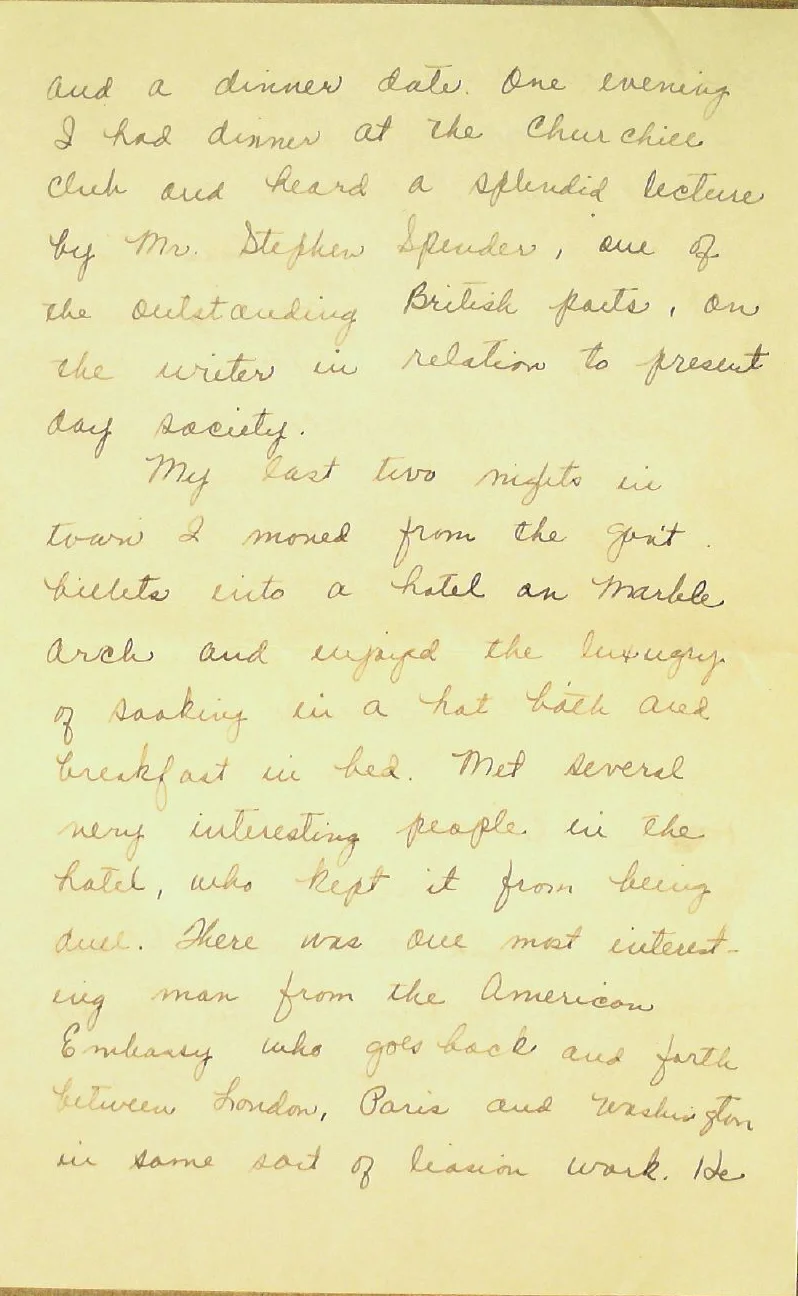 and a dinner date. One evening
I had dinner at the Churchill
Club and heard a splendid lecture
by Mr. Stephen Spender, one of
the outstanding British poets, on
the writer in relation to present
day society.
My last two nights in
town I moved from the gov't.
billets into a hotel on Marble
Arch and enjoyed the luxugry
of soaking in a hot bath and
breakfast in bed. Met several
very interesting people in the
hotel, who kept it from being
dull. There was one most interest-
ing man from the American
Embassy who goes back and forth
between London, Paris and Washington
in some sort of liasion work. He